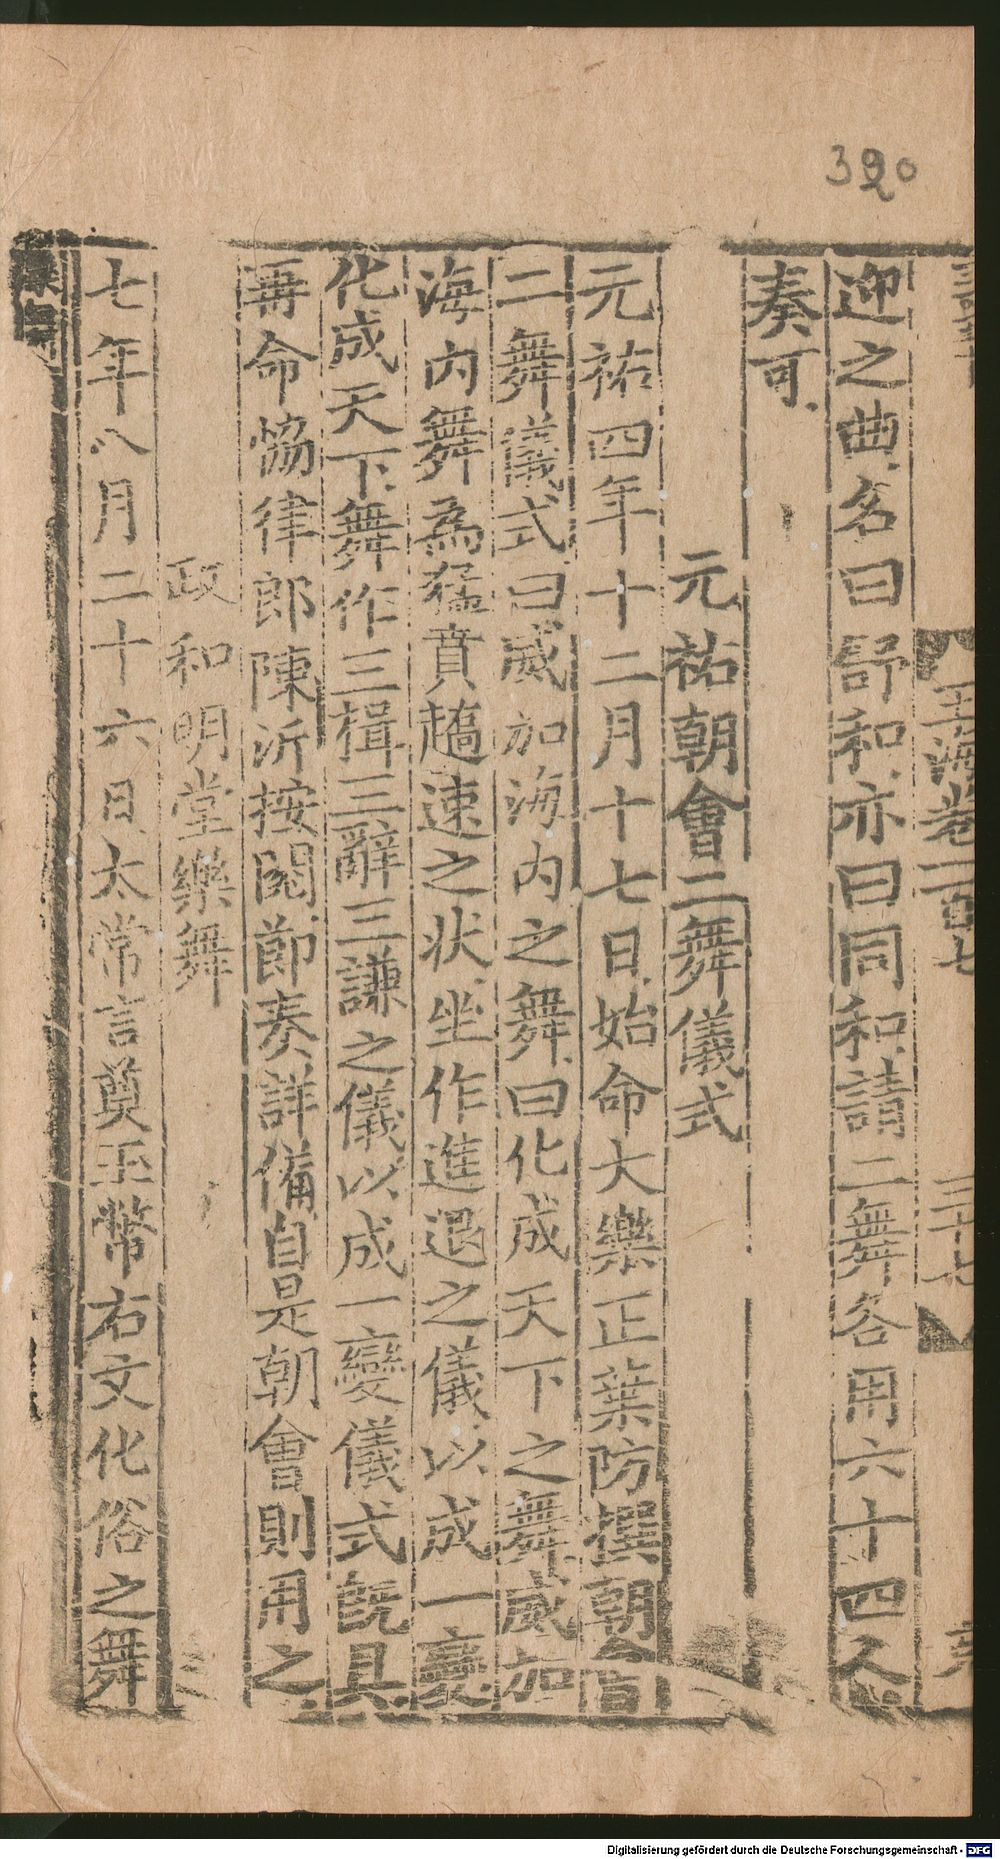 320
玉海卷一百七
三十七
迎之曲名曰舒和亦曰同和請二舞各用六十四人
奏可
元祐朝會二舞儀式
元祐四年十二月十七日始命大樂正葉防撰朝會
二舞儀式曰威加海内之舞曰化成天下之舞威加
海内舞爲猛賁趫速之狀坐作進退之儀以成一變
化成天下舞作三揖三辭三謙之儀以成一變儀式旣具
再命恊律郎陳沂按閱節奏詳備自是朝會則用之
政和明堂樂舞
七年八月二十六日太常言奠玉幣右文化俗之舞
Digitalisierung gefördert durch die Deutsche Forschungsgemeinschaft - DFG